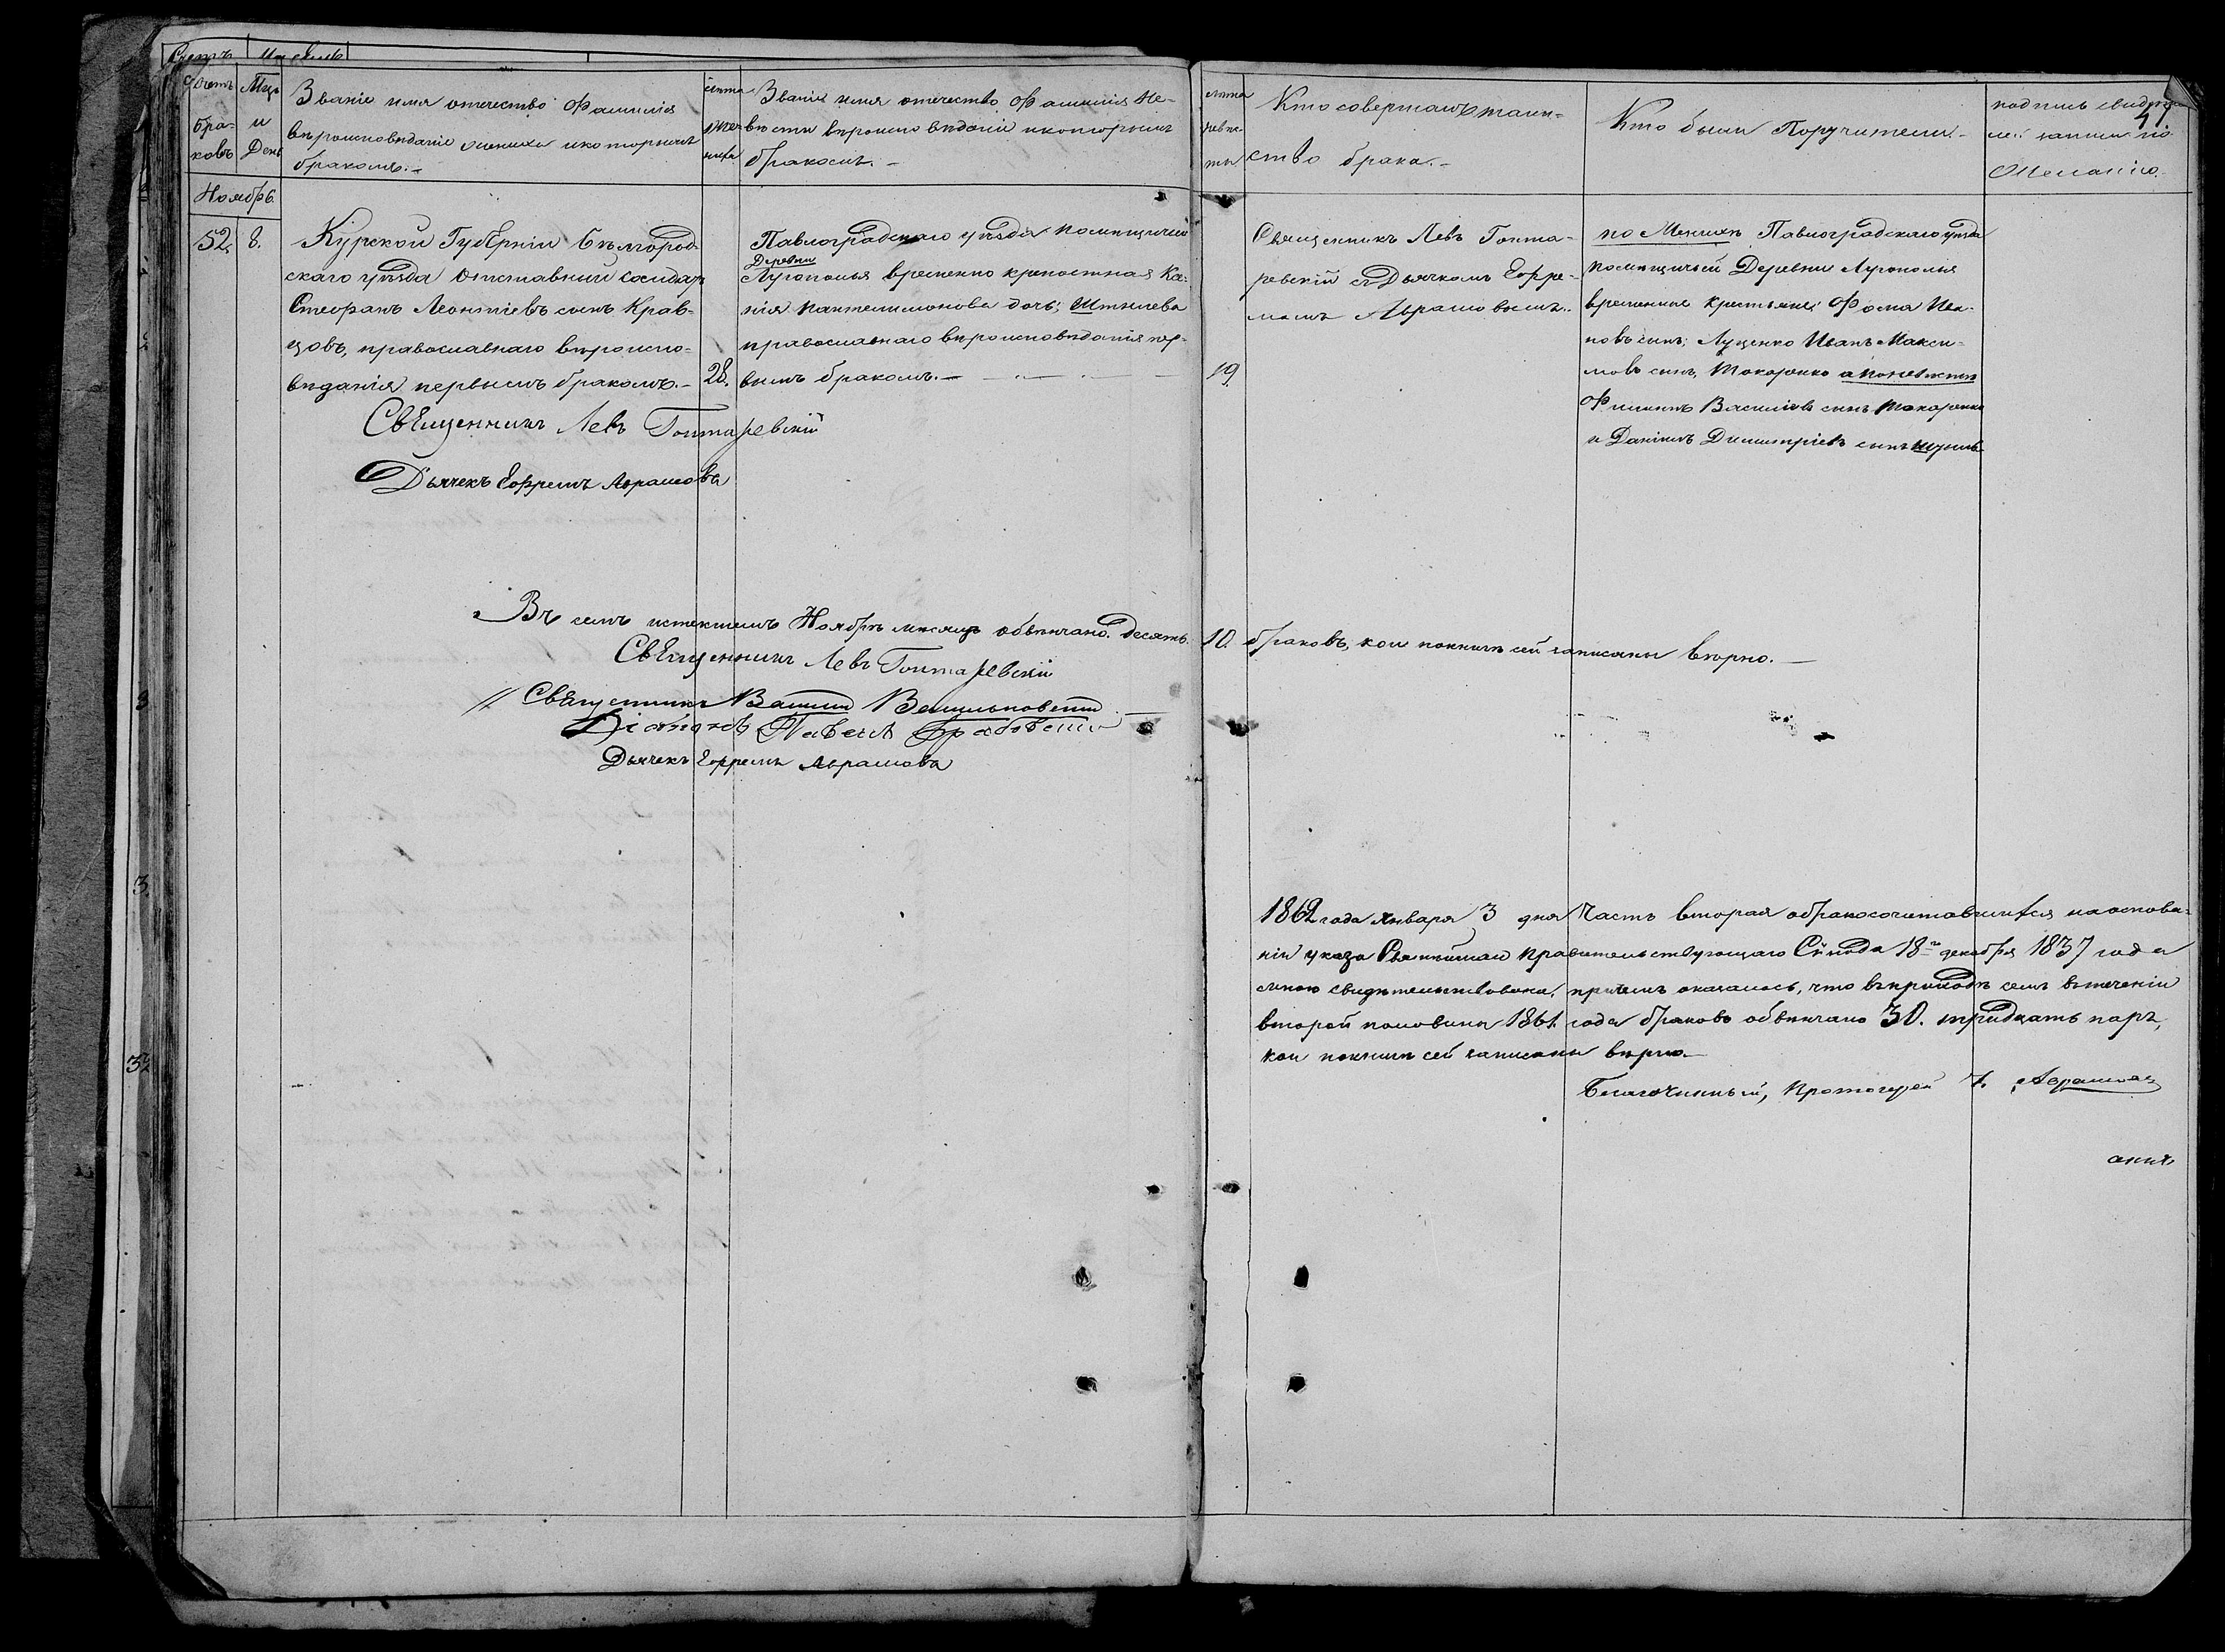 Счетъ
бра-
ковъ
Мць
и
День
Званіе имя отечество Фамилія
вѣроисповѣданіе жениха и которымъ
бракомъ.
Лѣта
жениха
Званіе имя отечество Фамилія не-
вѣсты вѣроисповѣданіе и которымъ
бракомъ.
Лѣта
невѣсты
Кто совершалъ таин-
ство брака.
Кто были Поручители
подпись свидѣте-
лей записи по
желанію.
47
Ноябрь.
52. 8.
Курской Губерніи Бѣлгород-
скаго уѣзда Отставный солдатъ
Стефанъ Леонтіевъ сынъ Крав-
цовъ, православнаго вѣроиспо-
вѣданія первымъ бракомъ.
28.
Павлоградскаго уѣзда помѣщичей
Деревни
Лугополья временно крепостная Ка-
пантелимонова дочь;
православнаго вѣроисповѣданія пер-
вымъ бракомъ.
19.
Священникъ Левъ Гонта-
ревскій съ Дьячкомъ Ефре-
момъ Аврамовымъ.
по Женихѣ Павлоградскаго уѣзда
помѣщичьей Деревни Лугополья
временные крестьяне: Фома Ива-
новъ сынъ; Луценко Иванъ Макси-
мовъ сынъ, Токаренко а по невѣстѣ
Филиппъ Василіевъ сынъ Токаренко
и Даніилъ Димитріевъ сынъ
Священникъ Левъ Гонтаревскій
Дьячекъ Ефремъ Аврамовъ
Въ семъ истекшемъ Ноябрѣ месяцѣ обвѣнчано. десять. 10. браковъ, кои по книгѣ сей записаны вѣрно.
Священникъ Левъ Гонтаревскій
Священникъ
Діаконъ Павелъ
Дьячекъ Ефремъ Аврамовъ
1862 года Января 3 дня Часть вторая о бракосочетавшихся на основа-
ніи указа Святѣйшаго Правительствующаго Сѵнода 18го декабря 1837 года
мною свидѣтельствована, причемъ оказалось, что въ приходѣ семъ втеченіи
второй половины 1861 года браковъ обвѣнчано 30. тридцать паръ,
кои по книгѣ сей записаны вѣрно.
Благочинный, Протоіерей І. Аврамовъ